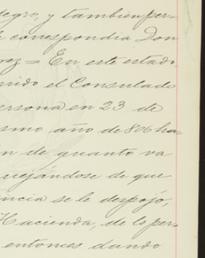 negro, y tambien per-
correspondia Don
ez = En este estado
rido el Consulado
ersona en 23 de
smo año de 806 ha-
n de quanto va
uejándose de que
ncia se le despojó,
Hacienda, de lo per-
entonces dando